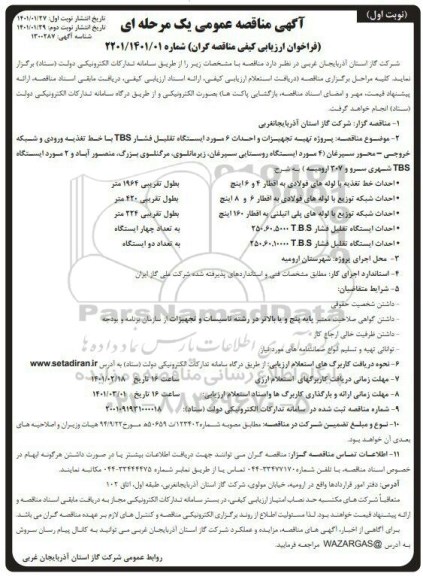 (نوبت اول)
تاریخ انتشار نوبت اول: ۱۴۰۱/۰۱/۲۷
تاریخ انتشار نوبت دوم: ۱۴۰۱/۰۱/۲۹
شناسه آگهی: ۱۳۰۰۲۸۷
آگهی مناقصه عمومی یک مرحله ای
(فراخوان ارزیابی کیفی مناقصه گران) شماره ۲۲۰۱/۱۴۰۱/۰۱
شرکت گاز استان آذربایجان غربی در نظر دارد مناقصه با مشخصات زیر را از طریق درگاه سامانه تدارکات الکترونیکی دولت (ستاد) برگزار
نماید. کلیه مراحل برگزاری مناقصه (دریافت استعلام ارزیابی کیفی، ارائه اسناد ارزیابی کیفی، دریافت مابقی اسناد مناقصه، ارائه
پیشنهاد قیمت، مهر و امضای اسناد مناقصه، بازگشایی پاکت ها) بصورت الکترونیکی و از طریق درگاه سامانه تدارکات الکترونیکی دولت
(ستاد) انجام خواهد گرفت.
۱- مناقصه گزار: شرکت گاز استان آذربایجانغربی
۲- موضوع مناقصه: پروژه تهیه تجهیزات و احداث ۶ مورد ایستگاه تقلیل فشار TBS با خط تغذیه ورودی و شبکه
خروجی – محور سیرغان (۴ مورد ایستگاه روستایی سیرغان، زیرمانلوی، مرگنلوی بزرگ، منصور آباد و ۲ مورد ایستگاه
TBS شهری سرو و ۲۰۷ ارومیه) به شرح
• احداث خط تغذیه با لوله های فولادی به اقطار ۴ و ۶ اینچ بطول تقریبی ۱۹۶۴ متر
• احداث شبکه توزیع با لوله های فولادی به اقطار ۶ و ۸ اینچ بطول تقریبی ۴۲۰ متر
• احداث شبکه توزیع با لوله های پلی اتیلنی به اقطار ۱۶۰ اینچ بطول تقریبی ۲۲۴ متر
• احداث ایستگاه تقلیل فشار T.B.S ۲۵۰.۶۰.۵۰۰۰ به تعداد چهار ایستگاه
• احداث ایستگاه تقلیل فشار T.B.S ۲۵۰.۶۰.۱۰۰۰۰ به تعداد دو ایستگاه
۳- محل اجرای پروژه: شهرستان ارومیه
۴- استاندارد اجرای کار: مطابق مشخصات فنی و استانداردهای پذیرفته شده شرکت ملی گاز ایران
۵- شرایط متقاضیان:
- داشتن شخصیت حقوقی
- داشتن گواهی صلاحیت معتبر پایه پنج و یا بالاتر در رشته تاسیسات و تجهیزات از سازمان برنامه و بودجه
- داشتن ظرفیت خالی ارجاع کار
- توانائی تهیه و تسلیم انواع ضمانتنامه های مورد نیاز
۶- نحوه دریافت کاربرگ های استعلام ارزیابی: از طریق درگاه سامانه تدارکات الکترونیکی دولت (ستاد) به آدرس www.setadiran.ir
۷- مهلت زمانی دریافت کاربرگهای استعلام ارزی ساعت ۱۶ تاریخ ۱۴۰۱/۰۲/۱۸
۸- مهلت زمانی ارائه و بارگذاری کاربرگ ها و اسناد استعلام ارزیابی: ساعت ۱۶ تاریخ ۱۴۰۱/۰۳/۰۱
۹- شماره مناقصه ثبت شده در سامانه تدارکات الکترونیکی دولت (ستاد): ۲۰۰۱۰۹۱۹۳۱۰۰۰۰۱۸
۱۰- نوع و مبلغ تضمین شرکت در مناقصه: مطابق مصوبه شماره ۱۲۳۴۰۲/ت۵۰۶۵۹ ه مورخ ۹۴/۹/۲۲ هیات وزیران و اصلاحیه های
بعدی آن خواهد بود.
۱۱- اطلاعات تماس مناقصه گزار: مناقصه گران می توانند جهت دریافت اطلاعات بیشتر یا در صورت داشتن هرگونه ابهام در
خصوص اسناد مناقصه، با تلفن شماره ۳۳۴۷۷۱۷۰-۰۴۴ تماس یا از طریق نمابر شماره ۳۳۴۴۴۴۷۵-۰۴۴ مکاتبه نمایند.
آدرس: دفتر امور قراردادها واقع در ارومیه، خیابان مولوی، شرکت گاز استان آذربایجانغربی، طبقه اول، اتاق ۱۰۲
متعاقباً شرکت های مکتسبه حد نصاب امتیاز ارزیابی کیفی، در بستر سامانه تدارکات الکترونیکی مجاز به دریافت مابقی اسناد مناقصه و
ارائه پیشنهاد قیمت خواهند بود. لذا مسئولیت اطلاع از روند برگزاری الکترونیکی مناقصه و کنترل های لازم بر عهده مناقصه گران می باشد.
برای آگاهی از اخبار، آگهی های مناقصه، مزایده و عملکرد شرکت گاز استان آذربایجان غربی می توانید به کانال پیام رسان سروش
به آدرس @WAZARGAS مراجعه فرمایید.
روابط عمومی شرکت گاز استان آذربایجان غربی
ParsNamadData
۰۲۱-۸۸۳۴۹۶۷۰-۵